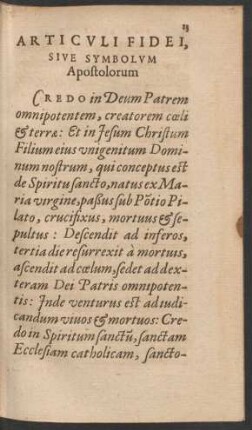 13
ARTICVLI FIDEI,
SIVE SYMBOLVM
Apostolorum
CREDO in Deum Patrem
omnipotentem, creatorem cœli
& terræ: Et in Jesum Christum
Filium eius vnigenitum Domi-
num nostrum, qui conceptus est
de Spiritu sancto, natus ex Ma-
ria virgine, passus sub Põtio Pi-
lato, crucifixus, mortuus & se-
pultus: Descendit ad inferos,
tertia die resurrexit à mortuis,
ascendit ad cœlum, sedet ad dex-
teram Dei Patris omnipoten-
tis: Inde venturus est ad iudi-
candum viuos & mortuos: Cre-
do in Spiritum sanctũ, sanctam
Ecclesiam catholicam, sancto-